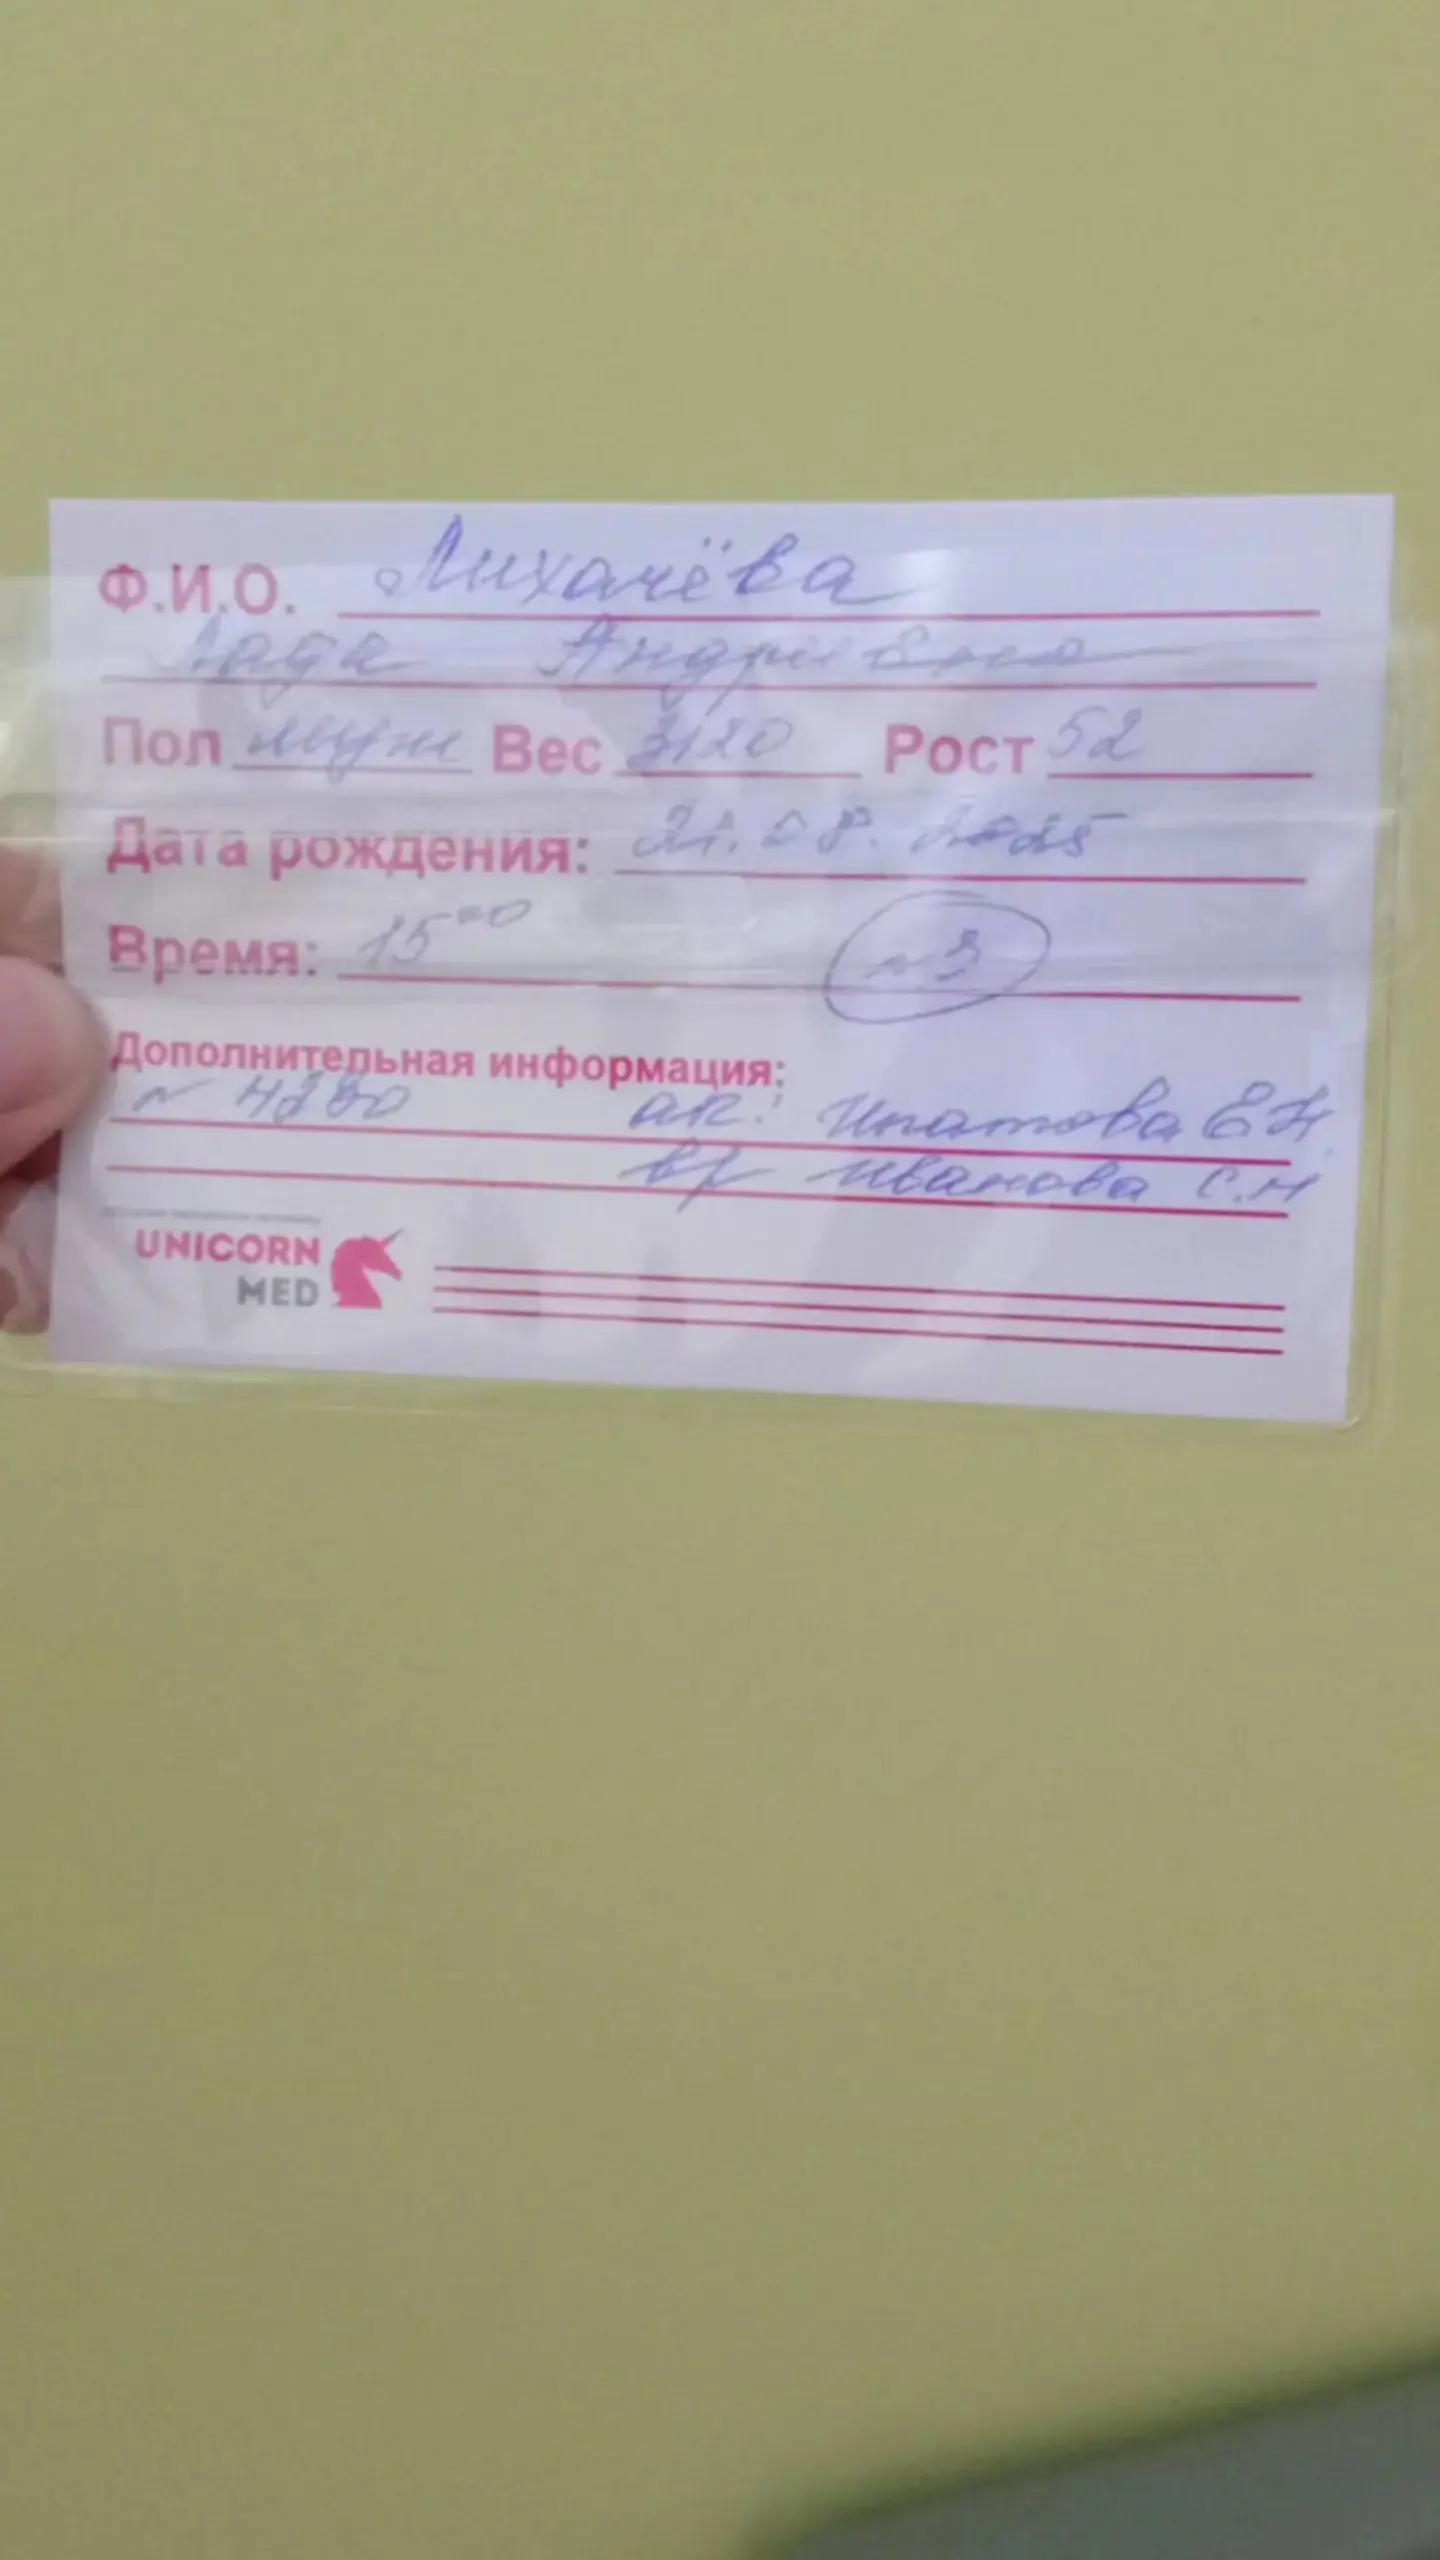 Ф.И.О. Лихачёва
Лада Андреевна
Пол муж Вес 3120 Рост 52
Дата рождения: 21.08.2025
Время: 15 00 № 3
Дополнительная информация:
№ 4290 ак: Ипатова Е.Н.
вр Иванова С.Н
UNICORN
MED